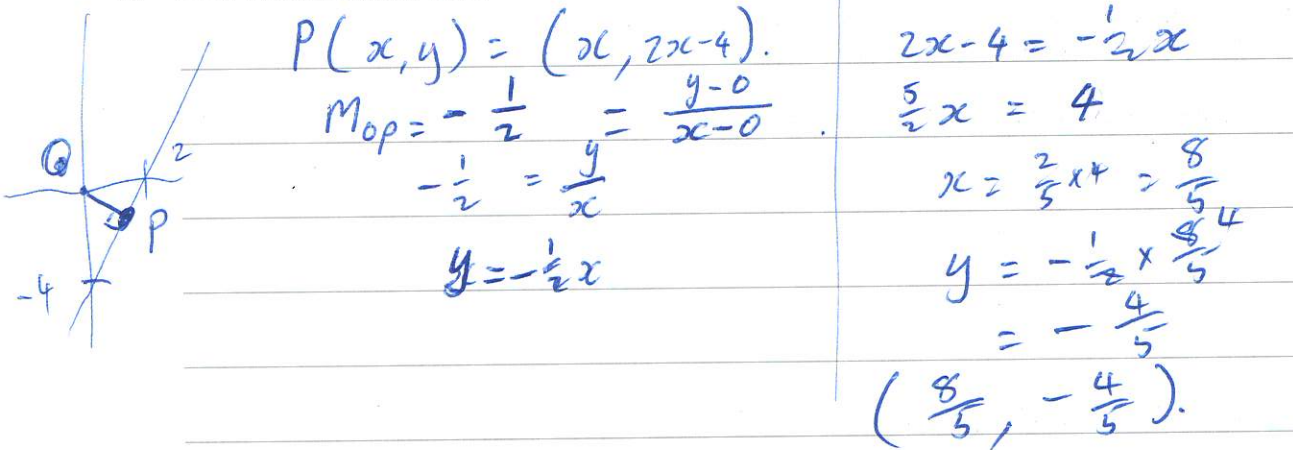 P(x,y) = (x, 2x-4).
M_OP = -1/2 = (y-0)/(x-0).
-1/2 = y/x
y = -1/2 x
O
2
P
-4
2x-4 = -1/2 x
5/2 x = 4
x = 2/5 × 4 = 8/5
y = -1/2 × 8/5 4
= -4/5
(8/5, -4/5).